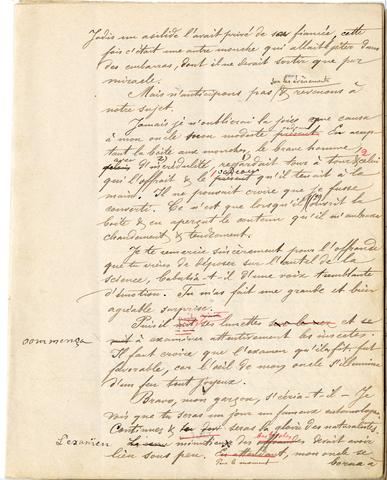 Jadis un asilide l'avait privé de sa fiancée, cette
fois c'était une autre mouche qui allait jeter dans
des embarras, dont il ne devait sortir que par
miracle.
sur les événements
Mais n'anticipons pas & revenons à
notre sujet.
Jamais je n'oublierai la joie que causa
à mon oncle mon modeste présent. En accep
tant la boîte aux mouches, le brave homme,
avec d'incrédulité, regardait tour à tour celui
cadeau
qui l'offrait & le présent qu'il tenait à la
main. Il ne pouvait croire que je fusse
converti. Ce n'est que lorsqu'il ouvrit la
boîte & en aperçut le contenu qu'il m'embrassa
chaudement & tendrement.
Je te remercie sincèrement pour l'offrande
que tu viens de déposer sur l'autel de la
science, balbutia-t-il d'une voix tremblante
d'émotion. Tu m'as fait une grande et bien
agréable surprise.
Puis il mit ses lunettes sur le nez et se
commença
mit à examiner attentivement les insectes.
Il faut croire que l'examen qu'il a fait, fut
favorable, car l'œil de mon oncle s'illumina
d'un feu tout joyeux.
Bravo, mon garçon, s'écria-t-il – Je
vois que tu seras un jour un fameux entomologue.
Continues & tu seras la gloire des naturalistes.
L'examen
minutieux des devait avoir
lieu sous peu. En attendant, mon oncle se
Pour le moment
borna à